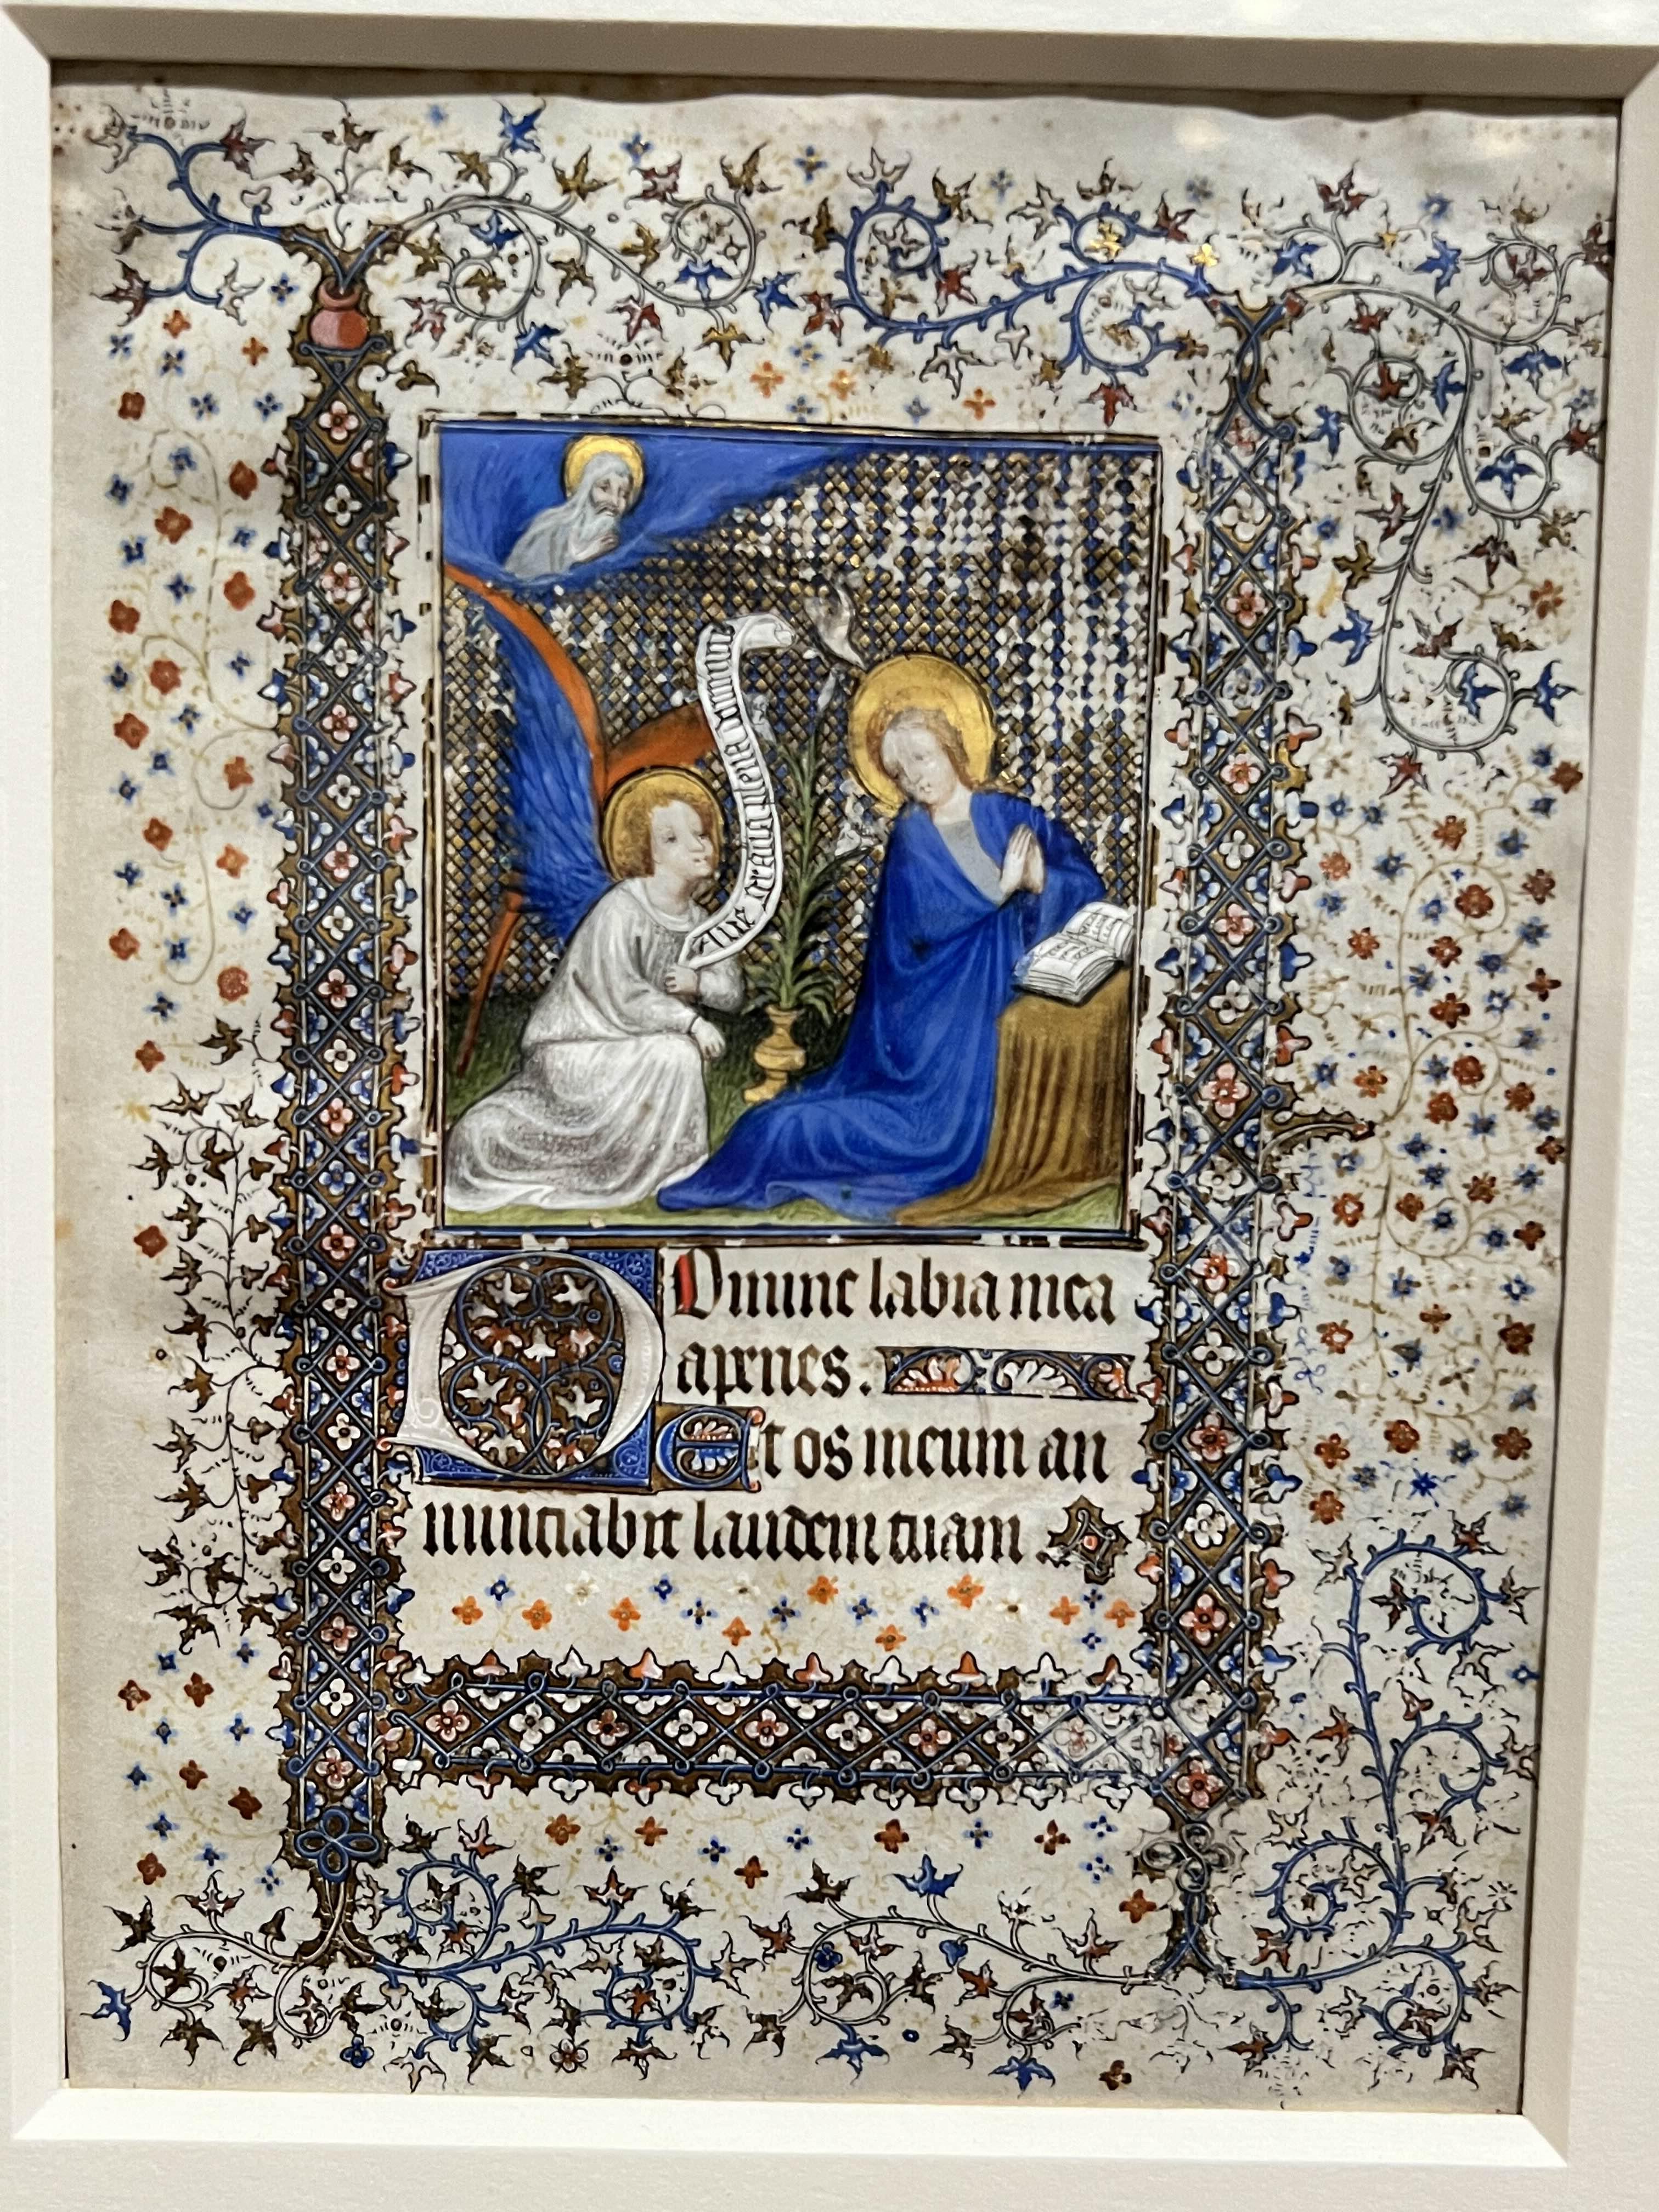 Aue gracia plena dominus
DOmine labia mea
aperies.
Et os meum an
nunciabit laudem tuam.